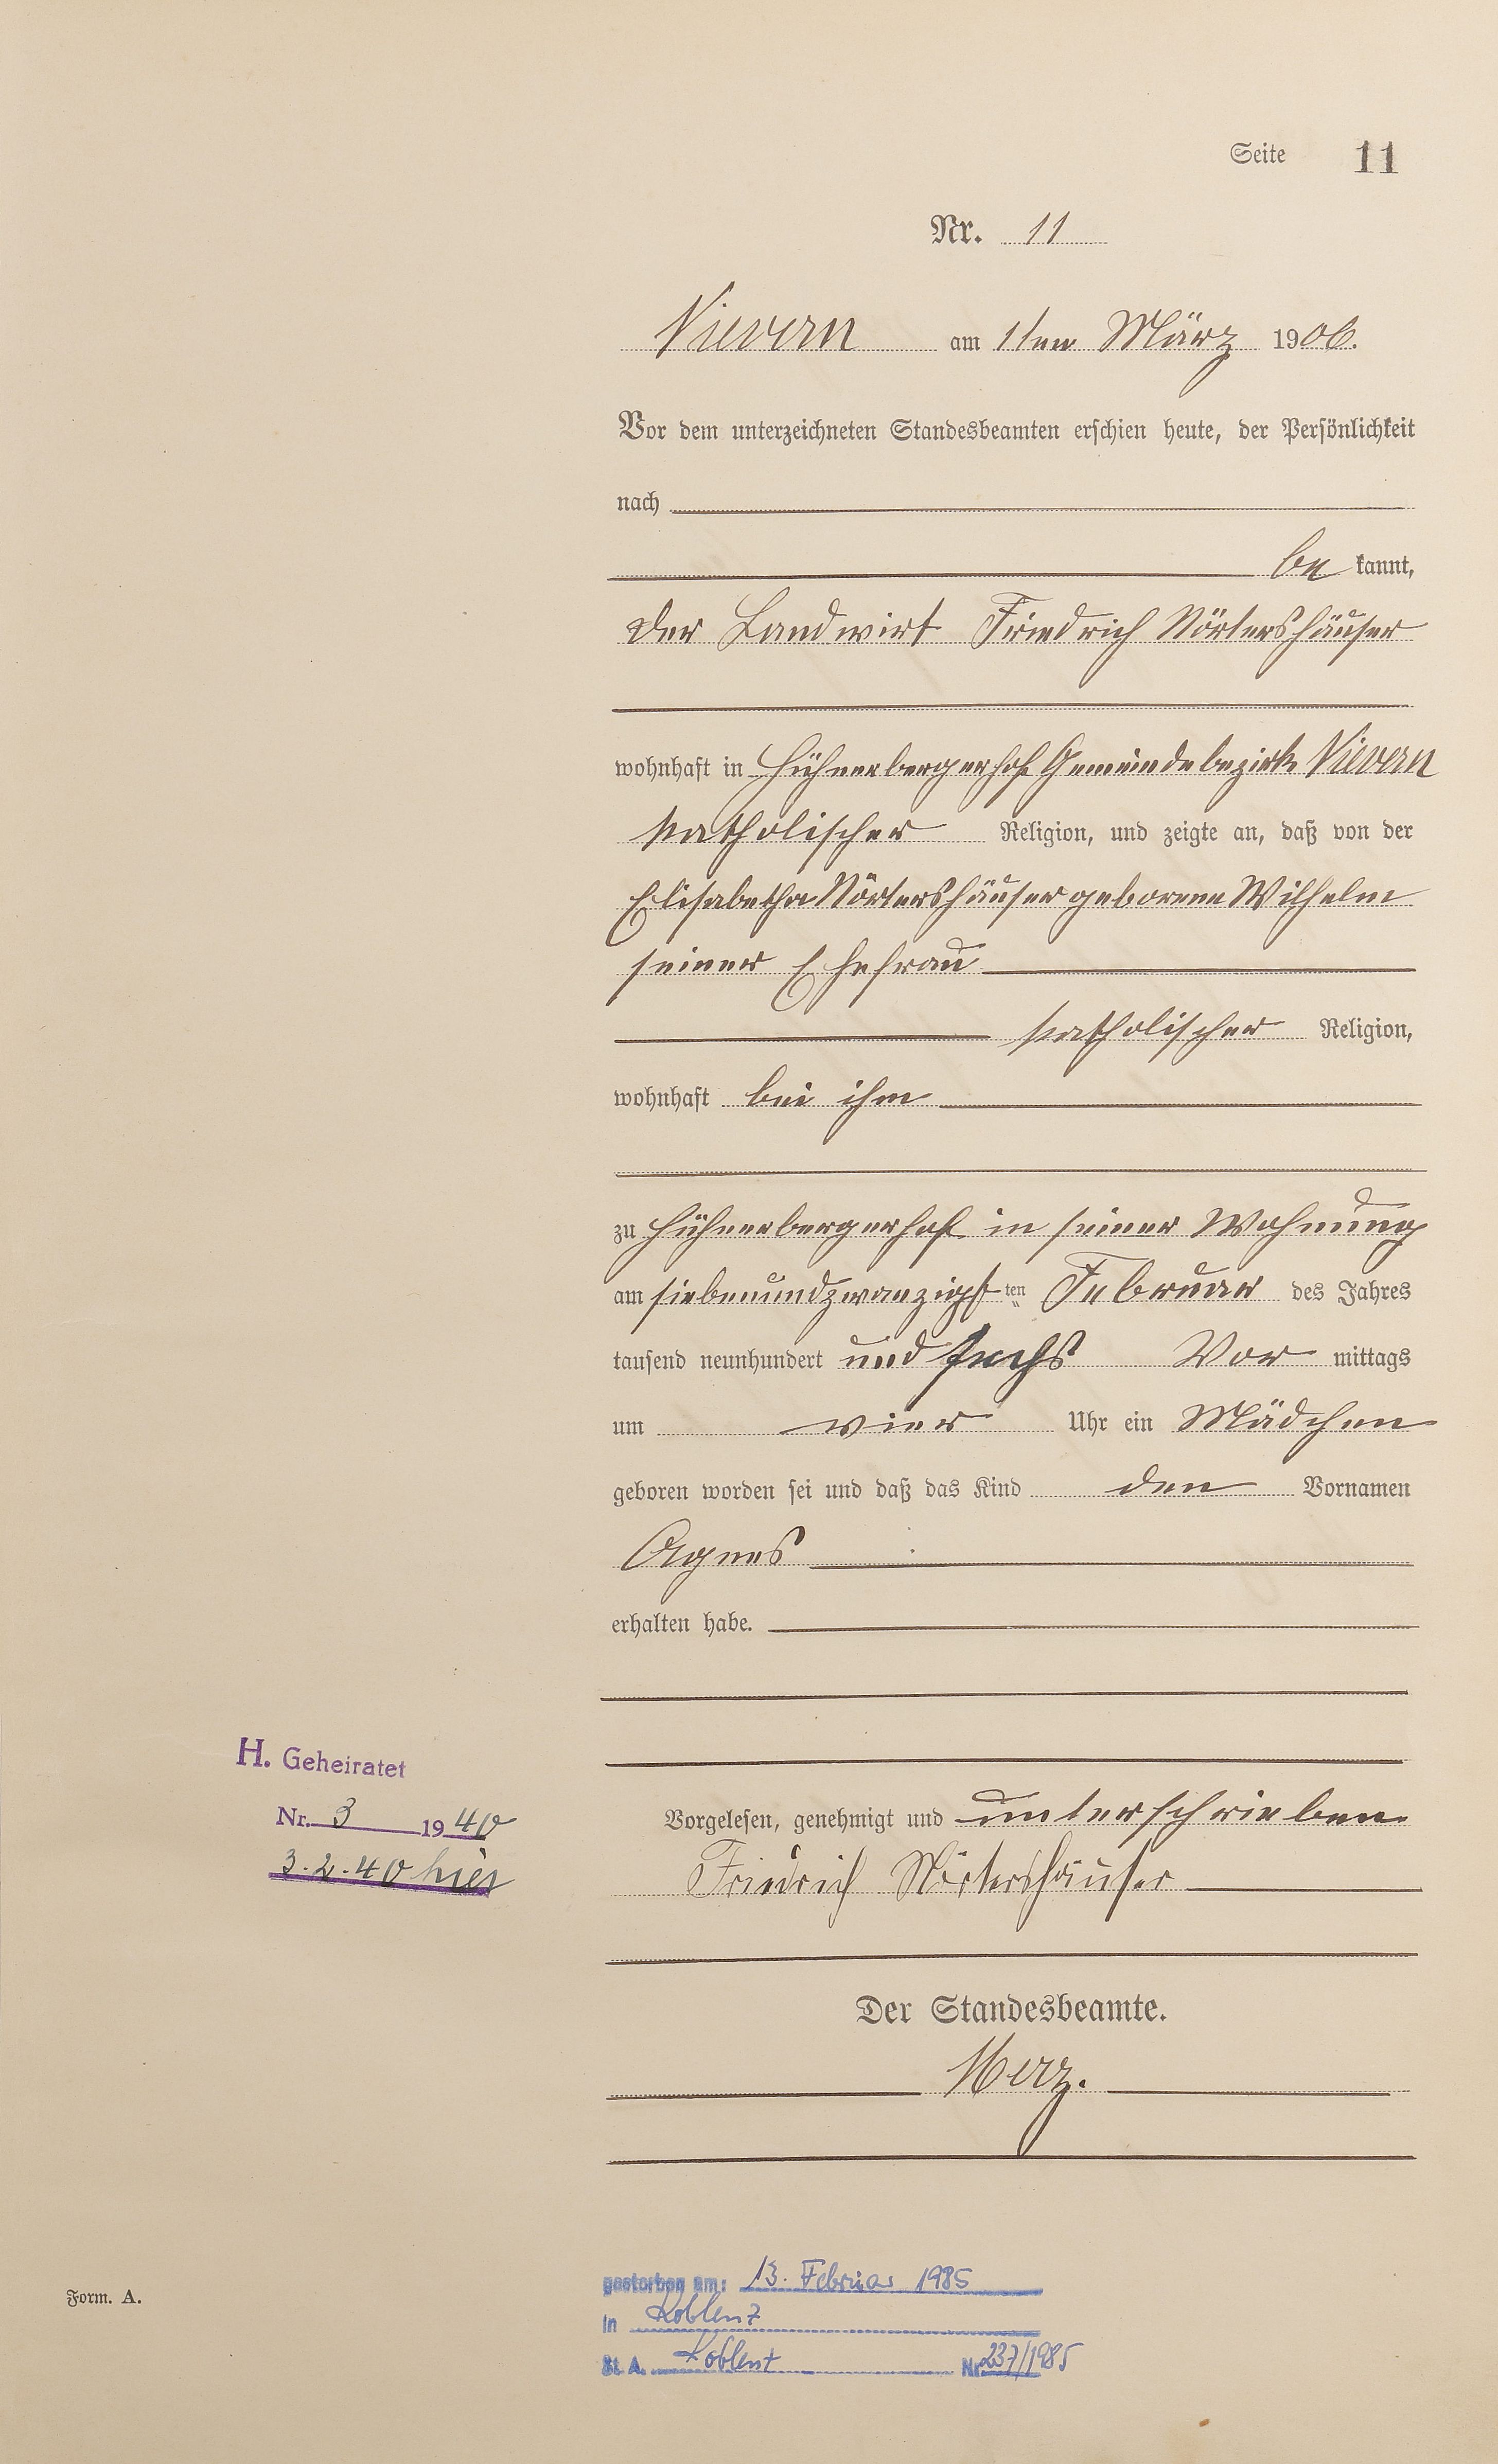 Seite 11
Nr. 11
Nievern am 1ten März 1906.
Vor dem unterzeichneten Standesbeamten erschien heute, der Persönlichkeit
nach
be kannt,
der Landwirt Friedrich Nörtershäuser
wohnhaft in Hühnerbergerhof Gemeindebezirk Nievern
katholischer Religion, und zeigte an, daß von der
Elisabetha Nörtershäuser geborene Wilhelm
seiner Ehefrau
katholischer Religion,
wohnhaft bei ihm
zu Hühnerbergerhof in seiner Wohnung
am siebenundzwanzigsten Februar des Jahres
tausend neunhundert und sechs Vor mittags
um vier Uhr ein Mädchen
geboren worden sei und daß das Kind den Vornamen
Agnes
erhalten habe.
H. Geheiratet
Nr. 3 1940
3.2.40 hier
Vorgelesen, genehmigt und unterschrieben
Friedrich Nörtershäuser
Der Standesbeamte.
Merz.
gestorben am: 13. Februar 1985
in Koblenz
St. A. Koblenz Nr. 237/1985
Form. A.